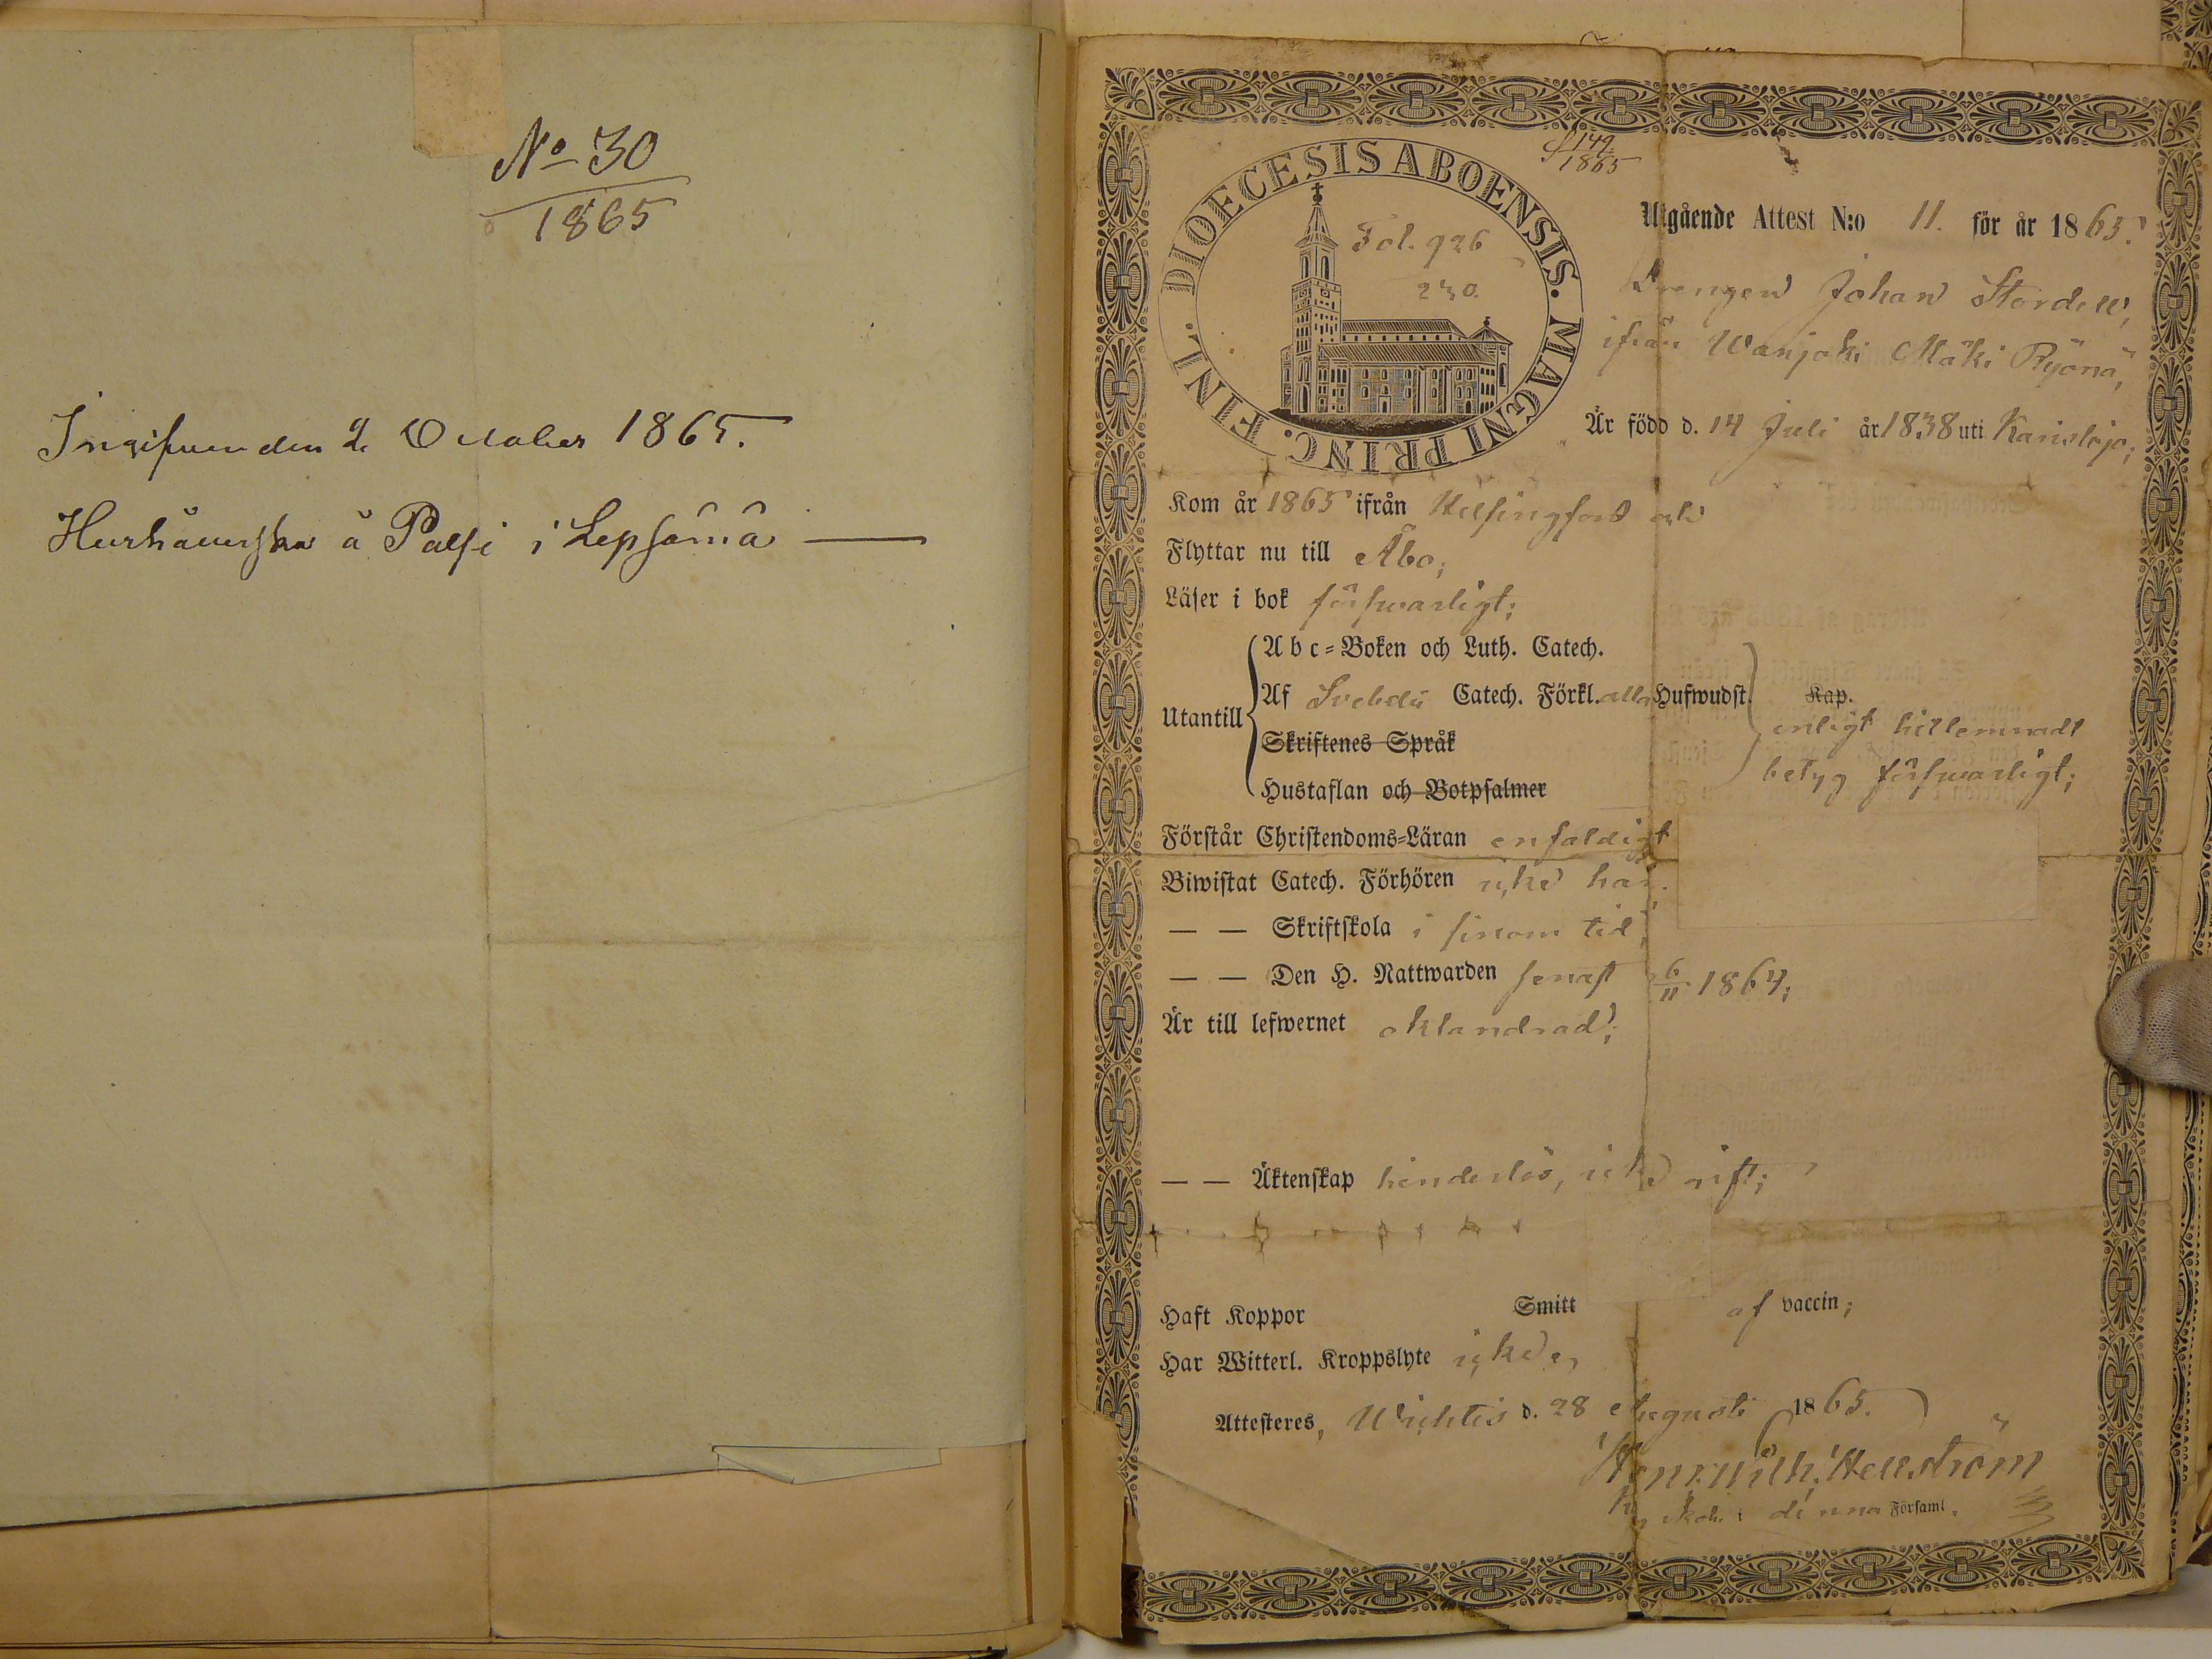 No 30
1865
Ingifven den 2 October 1865.
Hushållerskan å Palsi i Lepsämä
149.
1865
DIOECESIS ABOENSIS. MAGNI PRINC. FINL.
Fol. 926
230.
Utgående Attest N:o 11. för år 1865.
Drengen Johan Nordell,
ifrån Wanjoki Mäki Ryönä,
Är född d. 14 Juli år 1838 uti Karislojo;
Kom år 1865 ifrån Helsingfors och
Flyttar nu till Åbo;
Läser i bok försvarligt;
Utantill
Abc-Boken och Luth. Catech.
Af Svebelii Catech. Förkl. alla Hufwudst. Kap.
Skriftenes Språk
Hustaflan och Botpsalmer
enligt hitlemnadt
betyg försvarligt;
Förstår Christendoms-Läran enfaldigt
Biwistat Catech. Förhören icke här.
— — Skriftskola i sinom tid;
— — Den H. Nattwarden senast 6/11 1864;
Är till lefwernet oklandrad;
— — Äktenskap hinderlös, icke gift;
Haft Koppor Smitt af vaccin;
Har Witterl. Kroppslyte icke,
Attesteres, Wichtis d. 28 Augusti 1865.
Henr. Wilh. Hellström
i denna Församl.